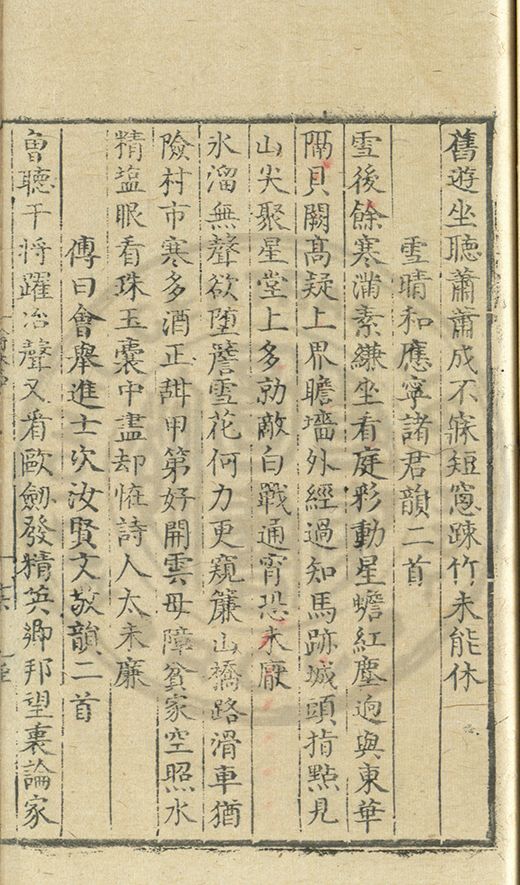 舊遊坐聽蕭蕭成不寐短窓疎竹未能休
雪晴和應寧諸君韻二首
雪後餘寒滿素縑坐看庭彩動星蟾紅塵逈與東華
隔貝闕高疑上界瞻墻外經過知馬跡城頭指點見
山尖聚星堂上多勍敵白戰通宵恐未厭
氷溜無聲欲墮簷雪花何力更窺簾山橋路滑車猶
險村市寒多酒正甜甲第好開雲母障貧家空照水
精塩眼看珠玉囊中盡却恠詩人太未廉
傅曰會舉進士次汝賢文敬韻二首
曾聽干將躍冶聲又看歐劒發精英鄉邦望裏論家